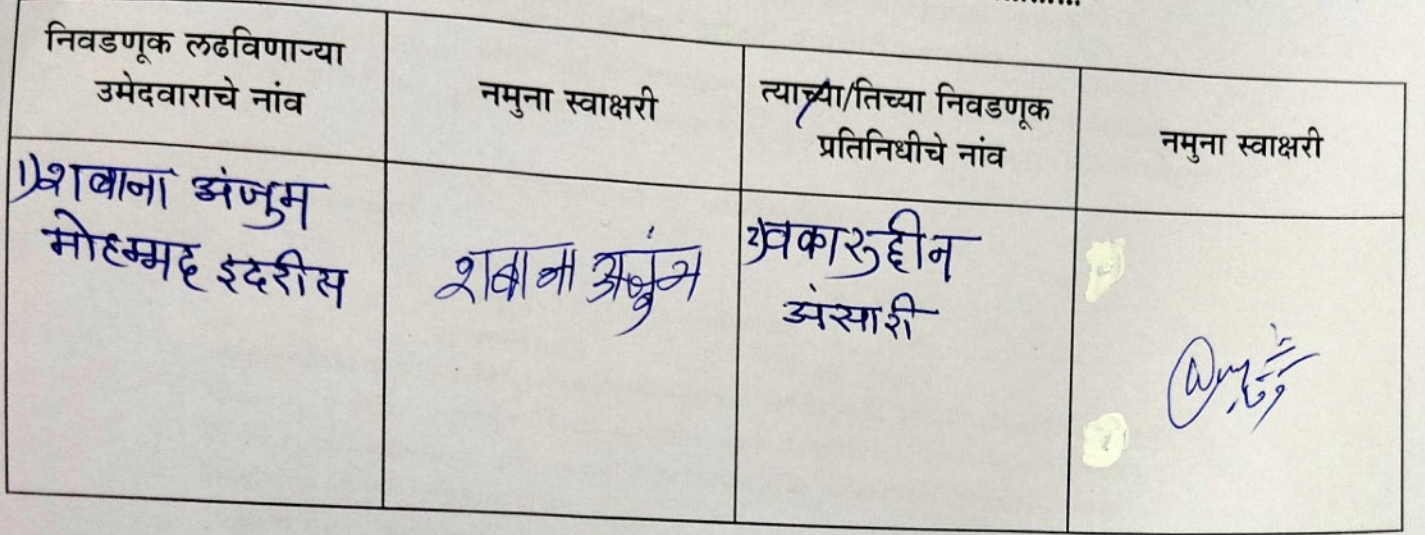 निवडणूक लढविणाऱ्या
उमेदवाराचे नांव
नमुना स्वाक्षरी
त्याच्या/तिच्या निवडणूक
प्रतिनिधीचे नांव
नमुना स्वाक्षरी
1) शबाना अंजुम
मोहम्मद इदरीस
शबाना अंजुम
2) वकारुद्दीन
अंसारी